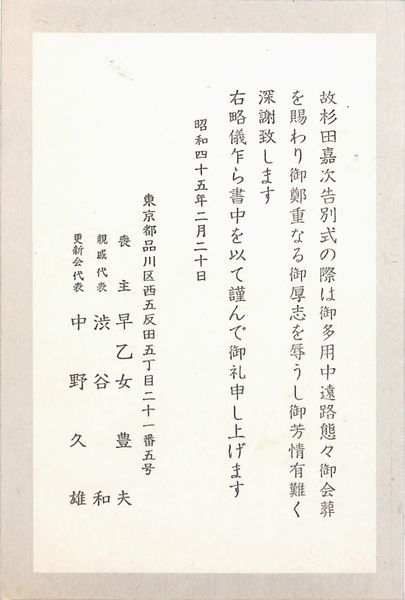 故杉田嘉次告別式の際は御多用中遠路態々御会葬
を賜わり御鄭重なる御厚志を辱うし御芳情有難く
深謝致します
右略儀乍ら書中を以て謹んで御礼申し上げます
昭和四十五年二月二十日
東京都品川区西五反田五丁目二十一番五号
喪主 早乙女豊夫
親戚代表 渋谷和
更新会代表 中野久雄